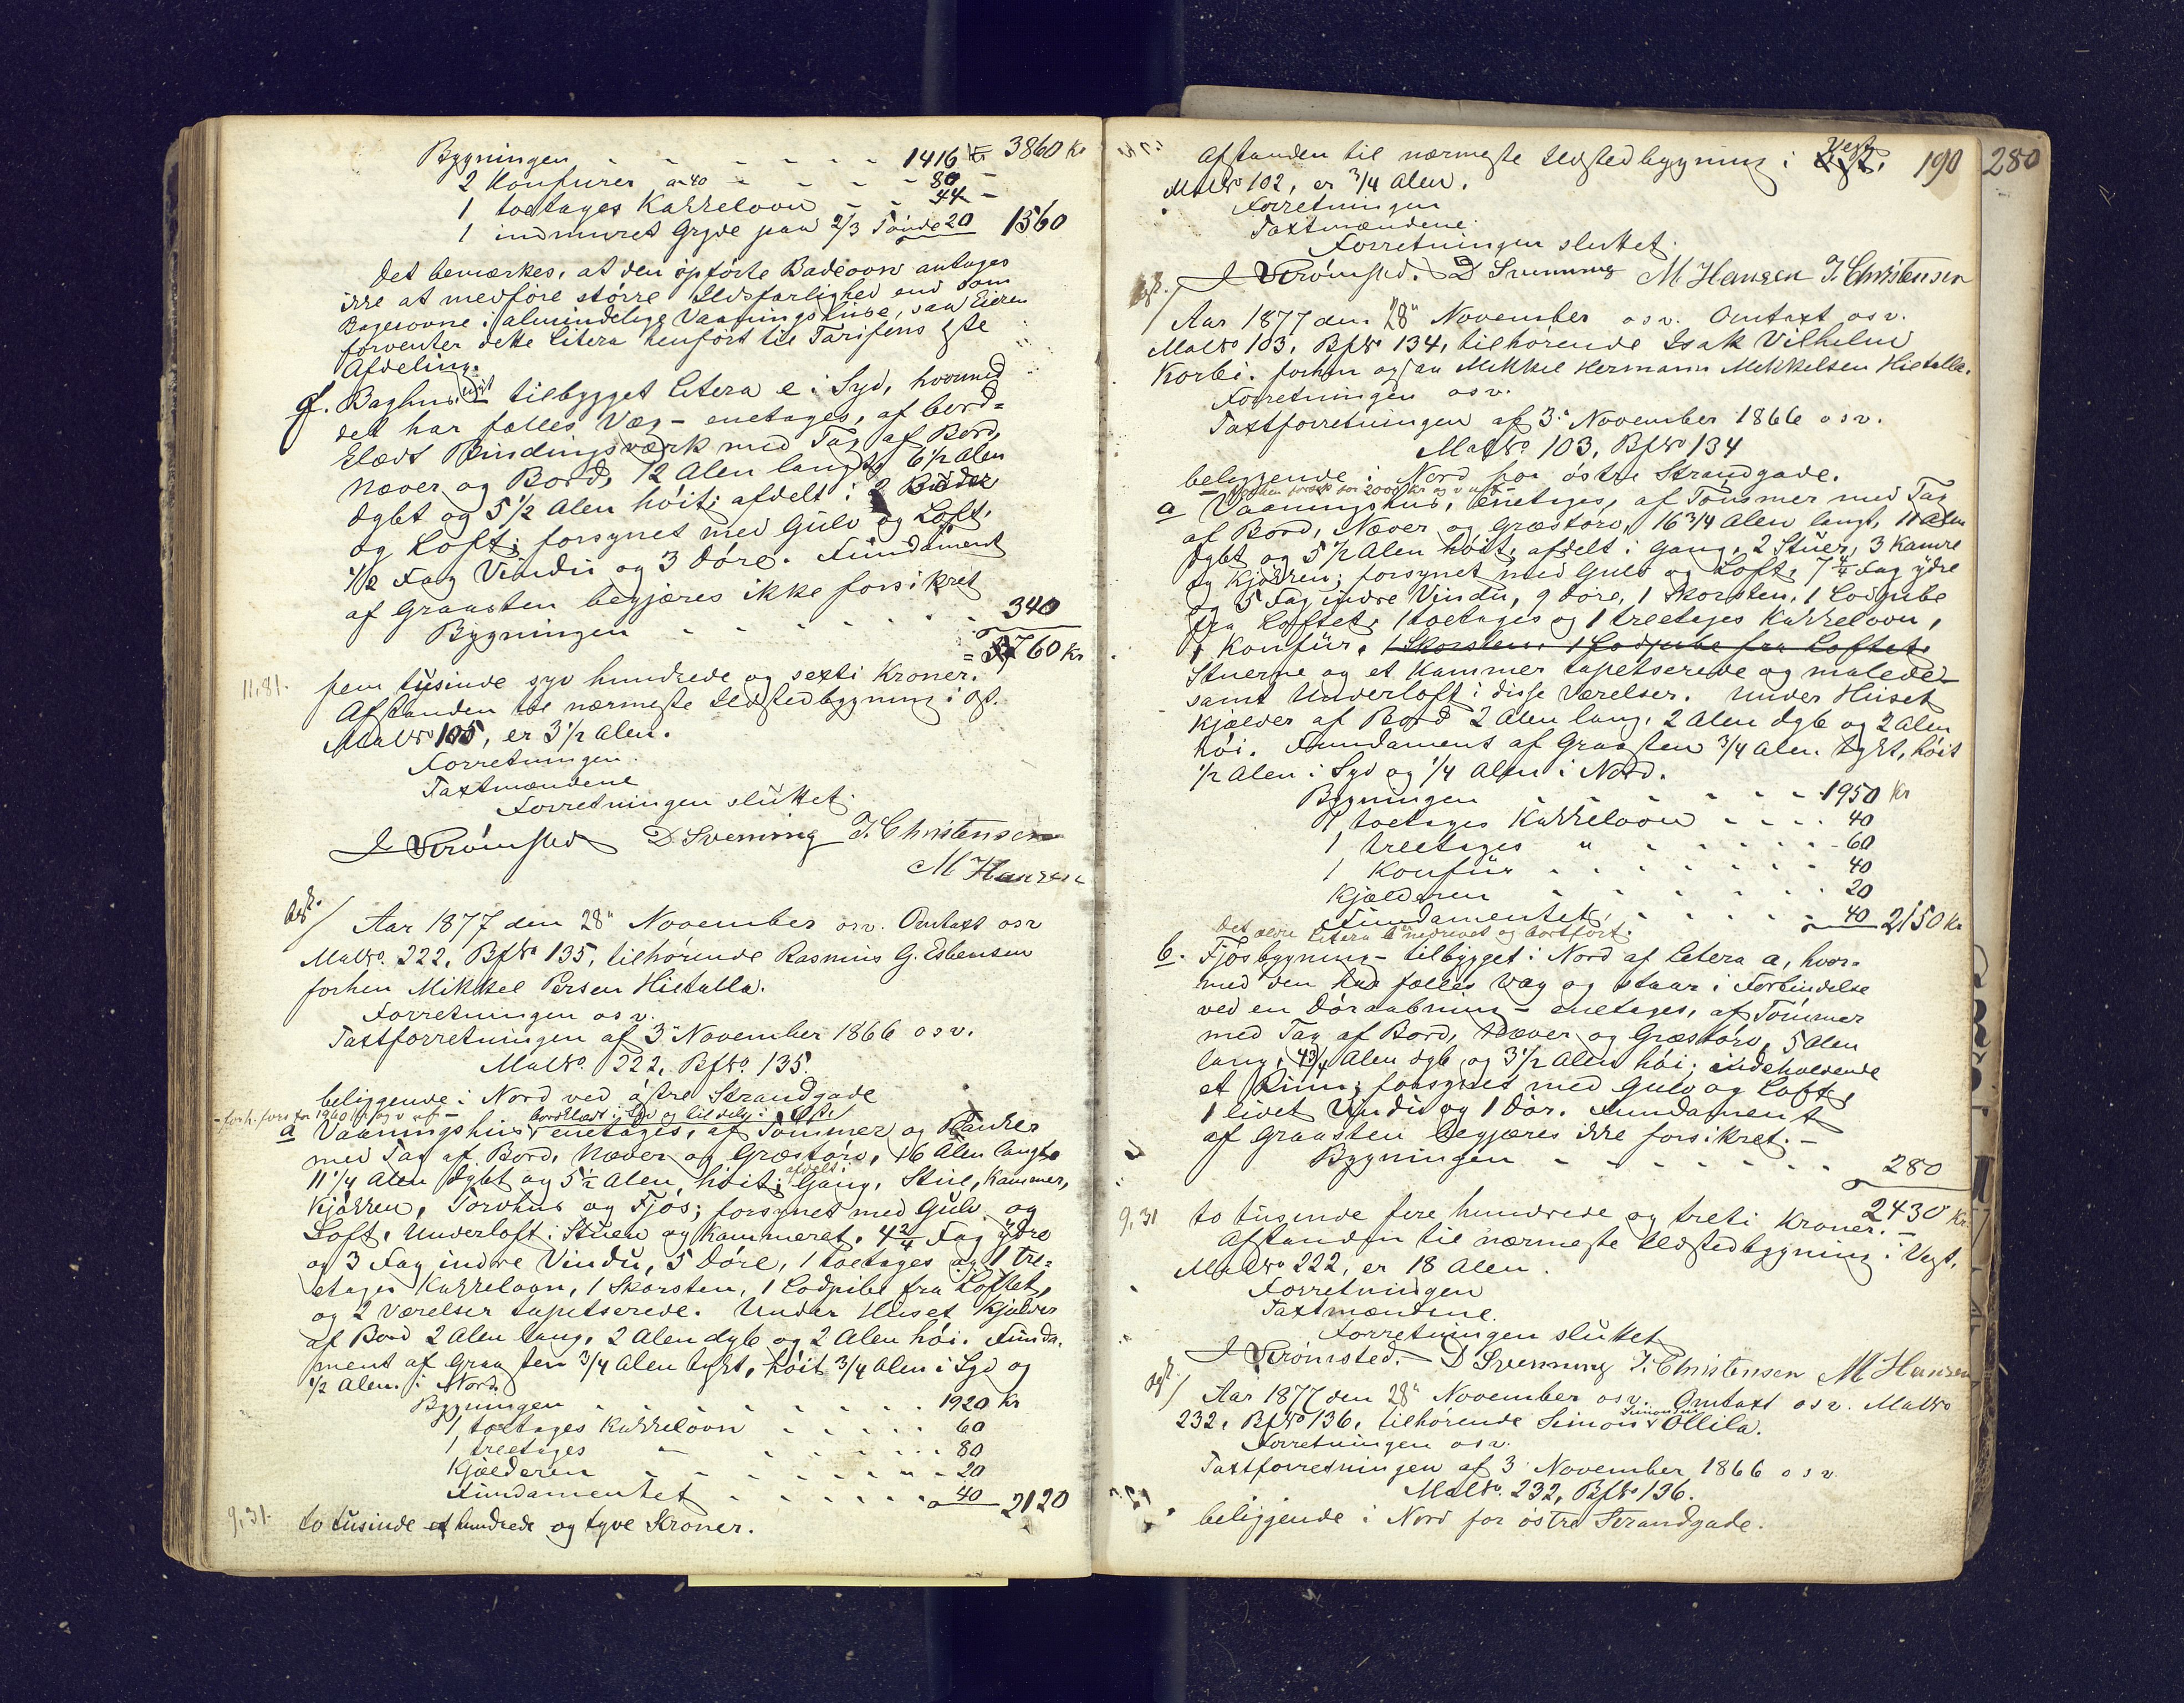 Bygningen - - - - - - 1416 Kr 3860 Kr
2 Konfurer a 40 - - - - 80 -
1 toetages Kakkelovn - - 44 -
1 indmuret Gryde paa 2/3 Tønde 20 1560
Det bemærkes, at den opførte Badeovn antages
ikke at medføre større Ildsfarlighed end som
Bagerovne i almindelige Vaaningshuse, saa Eieren
forventer dette Litera henført til Tarifens
Afdeling.
f. Baghus, tilbygget Litera e i Syd, hvormed
det har fælles Væg - enetages, af bord=
klædt Bindingsværk med Tag af Bord,
Næver og Bord, 12 Alen langt, 6 1/2 Alen
dybt og 5 1/2 Alen høit; afdelt i 2 Boder
og Loft; forsynet med Gulv og Loft,
4/2 Fag Vindu og 3 Døre. Fundament
af Graasten begjæres ikke forsikret
Bygningen - - - - - - - 340
= 5760 Kr
11,81. fem tusinde syv hundrede og sexti Kroner.
Afstanden til nærmeste Ildstedbygning i Øst.
MatNo 105, er 3 1/2 Alen.
Forretningen.
Taxtmændene
Forretningen sluttet.
J Strömsted D Svenning J. Christensen
M Hansen
Aar 1877 den 28" November osv. Omtaxt osv
MatNo. 222, BfNo 135, tilhørende Rasmus G. Esbensen
forhen Mikkel Persen Hietalla.
Forretningen osv.
Taxtforretningen af 3" November 1866 osv.
MatNo. 222, BfNo. 135.
beliggende i Nord ved østre Strandgade
- forh. fors for 1960 Kr og v uf - bordklædt i Syd og tildels i Øst,
a Vaaningshus, enetages, af Tømmer og Planker
med Tag af Bord, Næver og Græstørv, 16 Alen langt,
11 1/4 Alen dybt og 5 1/2 Alen høit; afdelt i Gang, Stue, Kammer,
Kjøkken, Torvhus og Fjøs; forsynet med Gulv og
Loft, Underloft i Stuen og Kammeret, 4 2/4 Fag ydre
og 3 Fag indre Vindu, 5 Døre, 1 toetages og 1 tre=
etages Kakkelovn, 1 Skorsten, 1 Lodpibe fra Loftet,
og 2 Værelser tapetserede. Under Huset Kjælder
af Bord 2 Alen lang, 2 Alen dyb og 2 Alen høi. Funda-
ment af Graasten 3/4 Alen tykt, høit 3/4 Alen i Syd og
1/2 Alen i Nord.
Bygningen - - - - - - - 1920 Kr
1 toetages Kakkelovn - - - - - 60
1 treetages " - - - - - 80
Kjælderen - - - - - - - - 20
Fundamentet - - - - - - 40 2120
9,31. to tusinde et hundrede og tyve Kroner.
190 280
Afstanden til nærmeste Ildstedbygning i Vest,
MatNo 102, er 3/4 Alen.
Forretningen
Taxtmændene
Forretningen sluttet.
J Strömsted. D Svenning M Hansen J. Christensen
Aar 1877 den 28" November osv. Omtaxt osv.
MatNo 103, BfNo 134, tilhørende Isak Vilhelm
Korbi. forhen ogsaa Mikkel Hermann Mikkelsen Hietalla.
Forretningen osv.
Taxtforretningen af 3" November 1866 osv.
MatNo. 103, BfNo 134
beliggende i Nord for østre Strandgade.
a Vaaningshus, enetages, af Tømmer med Tag
af Bord, Næver og Græstørv, 16 3/4 Alen langt, 11 Alen
dybt og 5 1/2 Alen høit, afdelt i Gang, 2 Stuer, 3 Kamre
og Kjøkken; forsynet med Gulv og Loft, 7 Fag ydre
og 5 Fag indre Vindu, 9 Døre, 1 Skorsten, 1 Lodpibe
fra Loftet, 1 toetages og 1 treetages Kakkelovn,
1 Konfur, 1 Skorsten, 1 Lodpibe fra Loftet.
Stuerne og et Kammer tapetserede og malede -
samt Underloft i disse Værelser. Under Huset
Kjælder af Bord 2 Alen lang, 2 Alen dyb og 2 Alen
høi. Fundament af Graasten 3/4 Alen tykt, høit
1/2 Alen i Syd og 1/4 Alen i Nord.
Bygningen - - - - - - - 1950 Kr
1 toetages Kakkelovn - - - - 40
1 treetages " - - - - - - 60
1 Konfur - - - - - - - 40
Kjælderen - - - - - - - 20
Fundamentet, - - - - - - 40 2150 Kr
Det ældre Litera b er nedrevet og bortført.
b. Fjøsbygning - tilbygget i Nord af Litera a, hvor-
med den har fælles Væg og staar i Forbindelse
ved en Døraabning - enetages, af Tømmer
med Tag af Bord, Næver og Græstørv, 5 Alen
lang, 4 3/4 Alen dyb og 3 1/2 Alen høi; indeholdende
et Rum; forsynet med Gulv og Loft,
1 lidet Vindu og 1 Dør. Fundament
af Graasten begjæres ikke forsikret. -
Bygningen - - - - - - - 280
2430 Kr.
9,31 to tusinde fire hundrede og treti Kroner. -
Afstanden til nærmeste Ildstedbygning i Vest,
MatNo 222, er 18 Alen.
Forretningen
Taxtmændene.
Forretningen sluttet
J Strömsted. D Svenning J. Christensen M Hansen
Aar 1877 den 28" November osv. Omtaxt osv. MatNo
232, BfNo 136, tilhørende Simon Simonsen Ollila.
Forretningen osv.
Taxtforretningen af 3 November 1866 osv
MatNo. 232, BfNo 136.
beliggende i Nord for østre Strandgade.